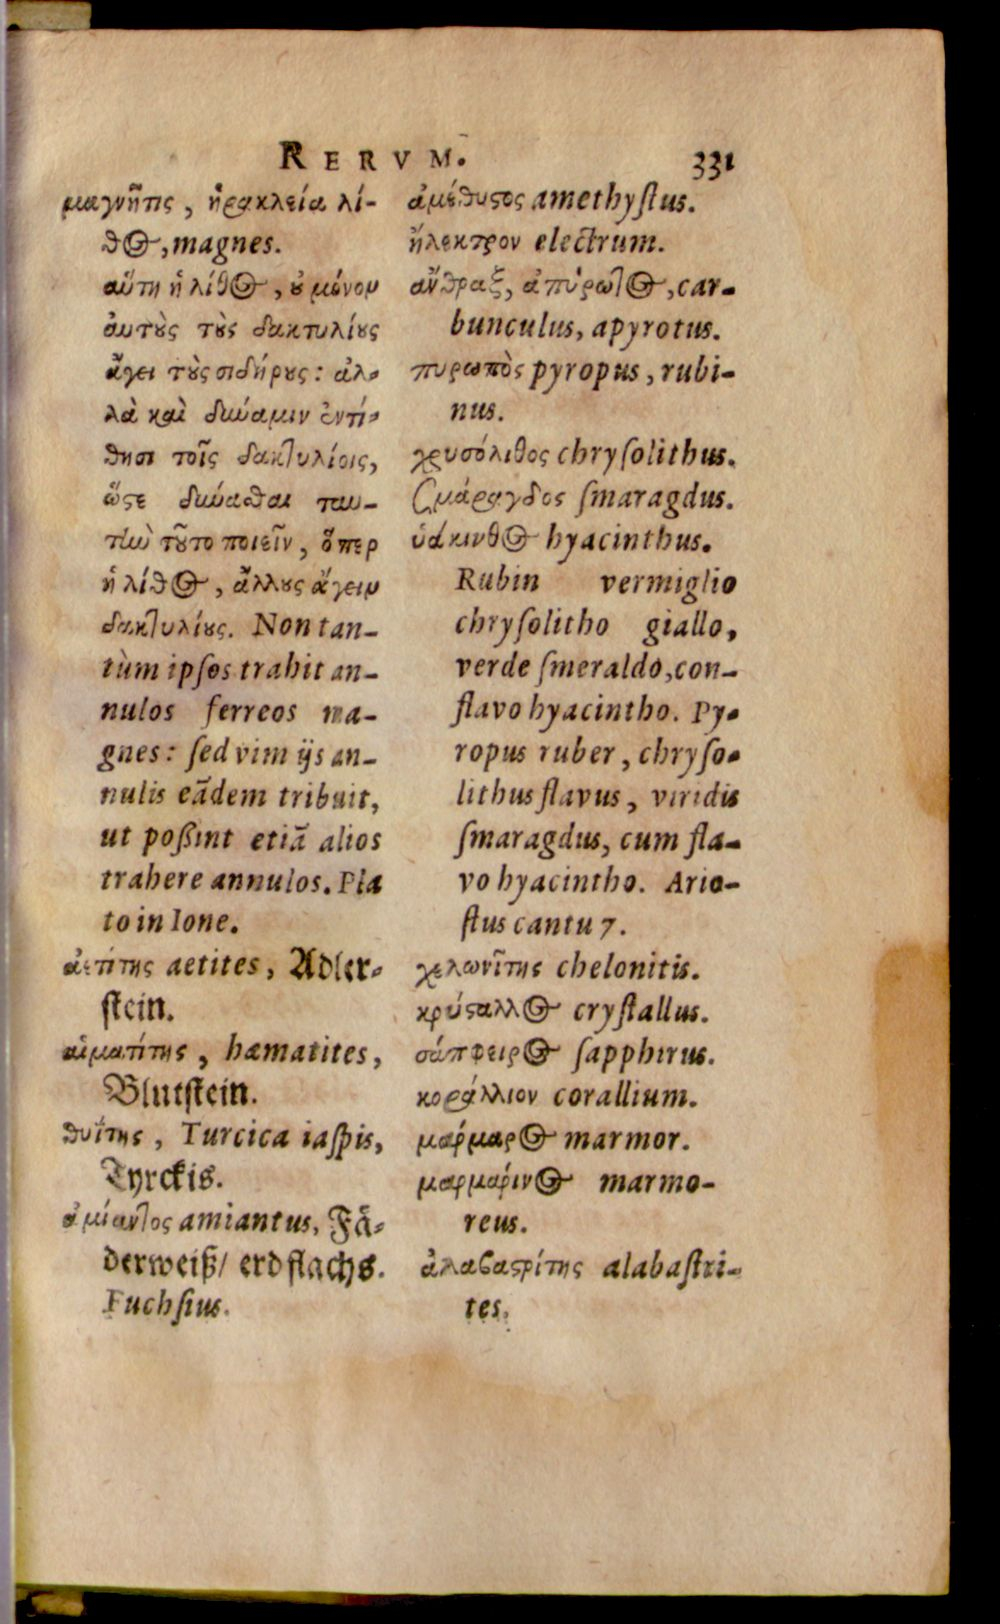 RERVM. 331
μαγνῆτις, ἡρακλεία λί-
θος, magnes.
αὕτη ἡ λίθος, οὐ μόνον
αὐτοὺς τοὺς δακτυλίους
ἄγει τοὺς σιδήρους: ἀλ-
λὰ καὶ δύναμιν ἐντί-
θησι τοῖς δακτυλίοις,
ὥστε δύνασθαι ταυ-
τὸν τοῦτο ποιεῖν, ὅπερ
ἡ λίθος, ἄλλους ἄγειν
δακτυλίους. Non tan-
tùm ipſos trahit an-
nulos ferreos ma-
gnes: ſed vim ijs an-
nulis eãdem tribuit,
ut poßint etiã alios
trahere annulos. Pla
to in Ione.
ἀετίτης aetites, Adler-
ſtein.
αἱματίτης, hæmatites,
Blutſtein.
θυΐτης, Turcica iaſpis,
Tyrckis.
ἀμίαντος amiantus, Få-
derweiß/ erdflachs.
Fuchſius.
ἀμέθυστος amethyſtus.
ἤλεκτρον electrum.
ἄνθραξ, ἀπύρωτος, car-
bunculus, apyrotus.
πυρωπὸς pyropus, rubi-
nus.
χρυσόλιθος chryſolithus.
ζμάραγδος ſmaragdus.
ὑάκινθος hyacinthus.
Rubin vermiglio
chryſolitho giallo,
verde ſmeraldo, con-
flavo hyacintho. Py-
ropus ruber, chryſo-
lithus flavus, viridis
ſmaragdus, cum fla-
vo hyacintho. Ario-
ſtus cantu 7.
χελωνῖτης chelonitis.
κρύσταλλος cryſtallus.
σάπφειρος ſapphirus.
κοράλλιον corallium.
μάρμαρος marmor.
μαρμάρινος marmo-
reus.
ἀλαβαστρίτης alabaſtri-
tes.